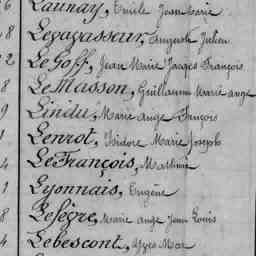 6 Launay, Emile Jean Marie
8 Legagasseur, Auguste Julien
2 Le Goff, Jean Marie Jacques François
8 Le Masson, Guillaume Marie ange
9 Lindu, Marie ange François
1 Lenrot, Isidore Marie Joseph
4 Le François, Mathurin
1 Lyonnais, Eugène
8 Lesègre, Marie ange Jean Louis
4 Lebescont, Yves Mar